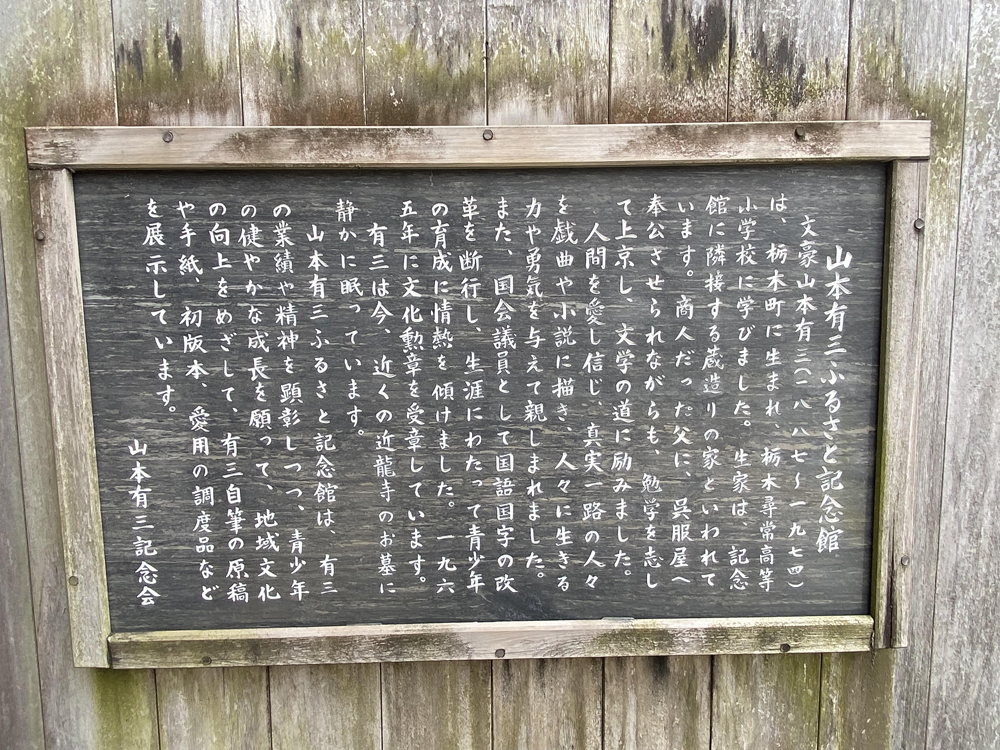 山本有三ふるさと記念館
文豪山本有三(一八八七〜一九七四)
は、栃木町に生まれ、栃木尋常高等
小学校に学びました。生家は、記念
館に隣接する蔵造りの家といわれて
います。商人だった父に、呉服屋へ
奉公させられながらも、勉学を志し
て上京し、文学の道に励みました。
人間を愛し信じ、真実一路の人々
を戯曲や小説に描き、人々に生きる
力や勇気を与えて親しまれました。
また、国会議員として国語国字の改
革を断行し、生涯にわたって青少年
の育成に情熱を傾けました。一九六
五年に文化勲章を受章しています。
有三は今、近くの近龍寺のお墓に
静かに眠っています。
山本有三ふるさと記念館は、有三
の業績や精神を顕彰しつつ、青少年
の健やかな成長を願って、地域文化
の向上をめざして、有三自筆の原稿
や手紙、初版本、愛用の調度品など
を展示しています。
山本有三記念会